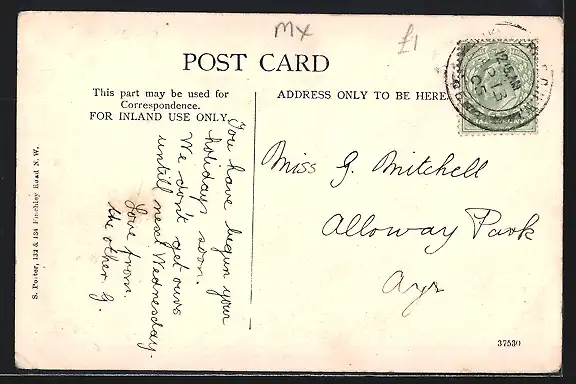 Mx
£1
POST CARD
This part may be used for
Correspondence.
FOR INLAND USE ONLY.
ADDRESS ONLY TO BE HERE.
You have begun your
holidays soon.
We don't get ours
untill next Wednesday.
Love from
the other G.
Miss G. Mitchell
Alloway Park
Ayr
S. Potter, 132 & 134 Finchley Road N. W.
37530